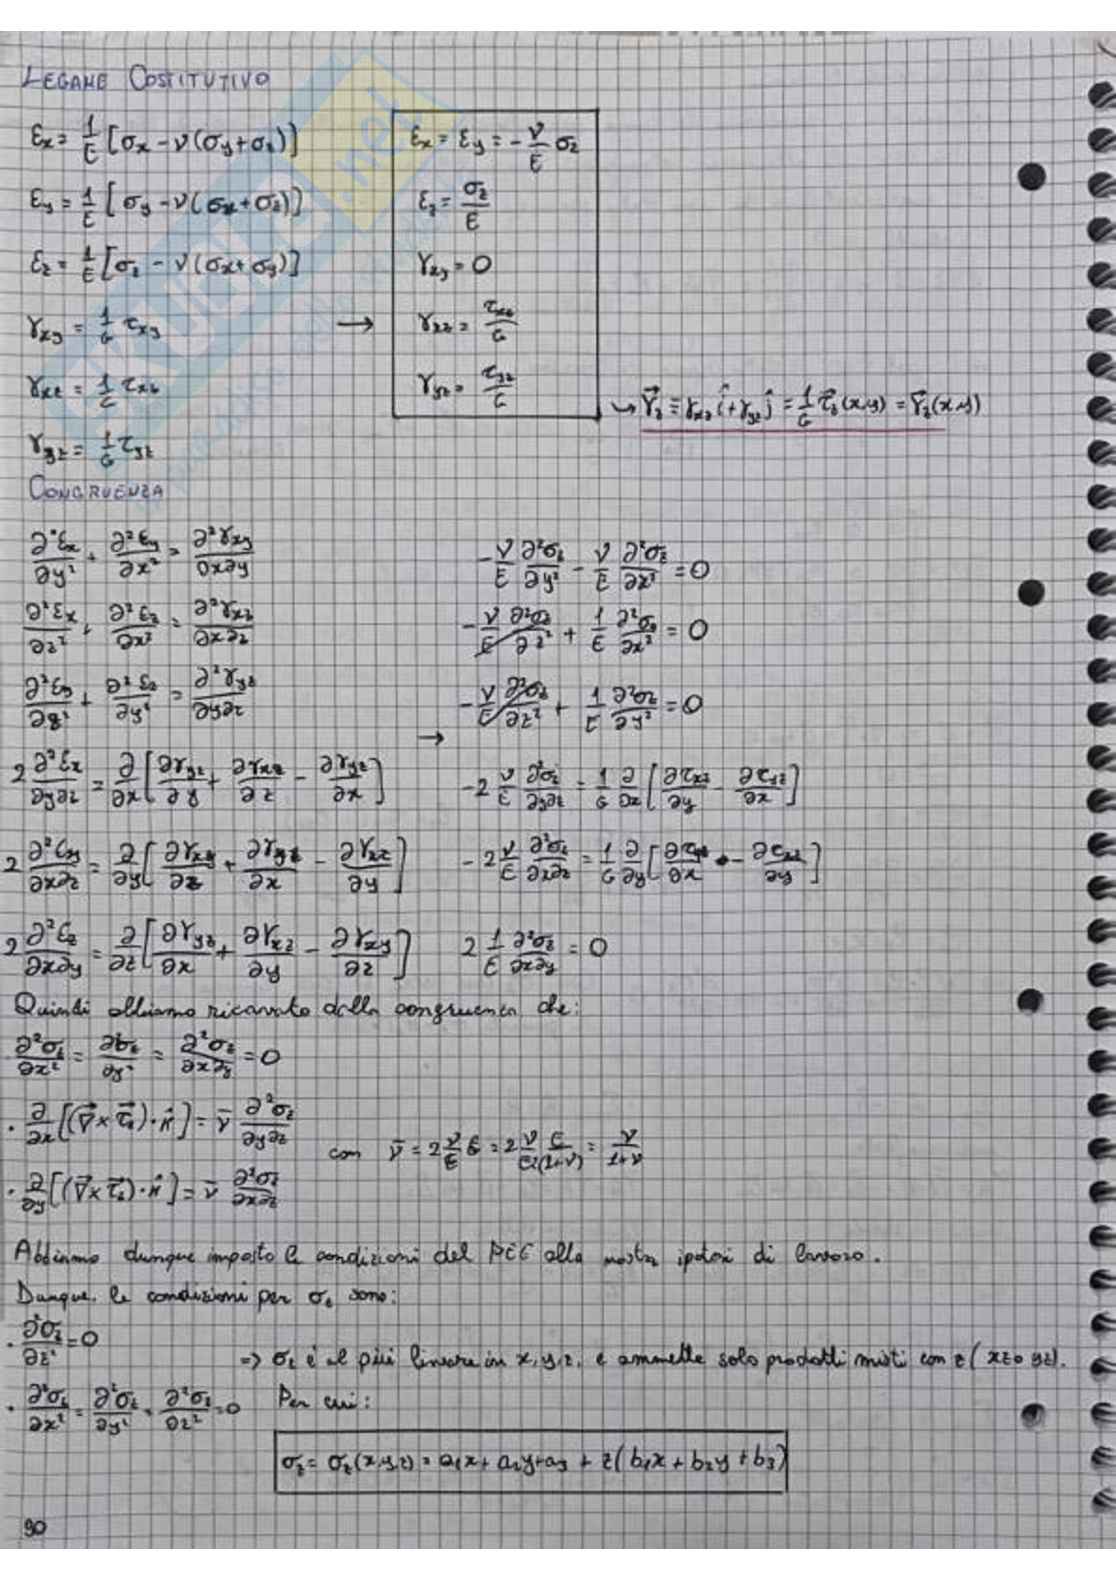 LEGAME COSTITUTIVO
εx = 1/E [σx - ν(σy + σz)]
εy = 1/E [σy - ν(σx + σz)]
εz = 1/E [σz - ν(σx + σy)]
γxy = 1/G τxy
γxz = 1/G τxz
γyz = 1/G τyz
→
εx = εy = - ν/E σz
εz = σz/E
γxy = 0
γxz = τxz/G
γyz = τyz/G
↪ γ⃗z ≡ γxz î + γyz ĵ = 1/G τ⃗z(x,y) = γ⃗z(x,y)
CONGRUENZA
∂²εx/∂y² + ∂²εy/∂x² = ∂²γxy/∂x∂y
∂²εx/∂z² + ∂²εz/∂x² = ∂²γxz/∂x∂z
∂²εy/∂z² + ∂²εz/∂y² = ∂²γyz/∂y∂z
2 ∂²εx/∂y∂z = ∂/∂x [∂γyz/∂y + ∂γxz/∂z - ∂γyz/∂x]
2 ∂²εy/∂x∂z = ∂/∂y [∂γxy/∂z + ∂γyz/∂x - ∂γxz/∂y]
2 ∂²εz/∂x∂y = ∂/∂z [∂γyz/∂x + ∂γxz/∂y - ∂γxy/∂z]
→
- ν/E ∂²σz/∂y² - ν/E ∂²σz/∂x² = 0
- ν/E ∂²σz/∂z² + 1/E ∂²σz/∂x² = 0
- ν/E ∂²σz/∂z² + 1/E ∂²σz/∂y² = 0
-2 ν/E ∂²σz/∂y∂z = 1/G ∂/∂x [∂τxz/∂y - ∂τyz/∂x]
-2 ν/E ∂²σz/∂x∂z = 1/G ∂/∂y [∂τyz/∂x - ∂τxz/∂y]
2 1/E ∂²σz/∂x∂y = 0
Quindi abbiamo ricavato dalla congruenza che:
∂²σz/∂x² = ∂σz/∂y² = ∂²σz/∂x∂y = 0
· ∂/∂x [(∇⃗ × τ⃗z) · k̂] = ν̄ ∂²σz/∂y∂z
con ν̄ = 2 ν/E G = 2 ν/E E/2(1+ν) = ν/1+ν
· ∂/∂y [(∇⃗ × τ⃗z) · k̂] = ν̄ ∂²σz/∂x∂z
Abbiamo dunque imposto le condizioni del PEE alla nostra ipotesi di lavoro.
Dunque. le condizioni per σz sono:
· ∂²σz/∂z² = 0
=> σz è al più lineare in x, y, z, e ammette solo prodotti misti con z (xz o yz).
· ∂²σz/∂x² = ∂²σz/∂y² = ∂²σz/∂z² = 0 Per cui:
σz = σz(x,y,z) = a1x + a2y + a3 + z(b1x + b2y + b3)
90